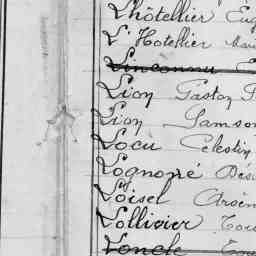 Lhôtellier Eug
L'Hotellier
Linconnu
Lion Gaston
Lion Samson
Locu Celestin
Lognoné Dési
Loisel Arsèn
Lollivier
Loncle